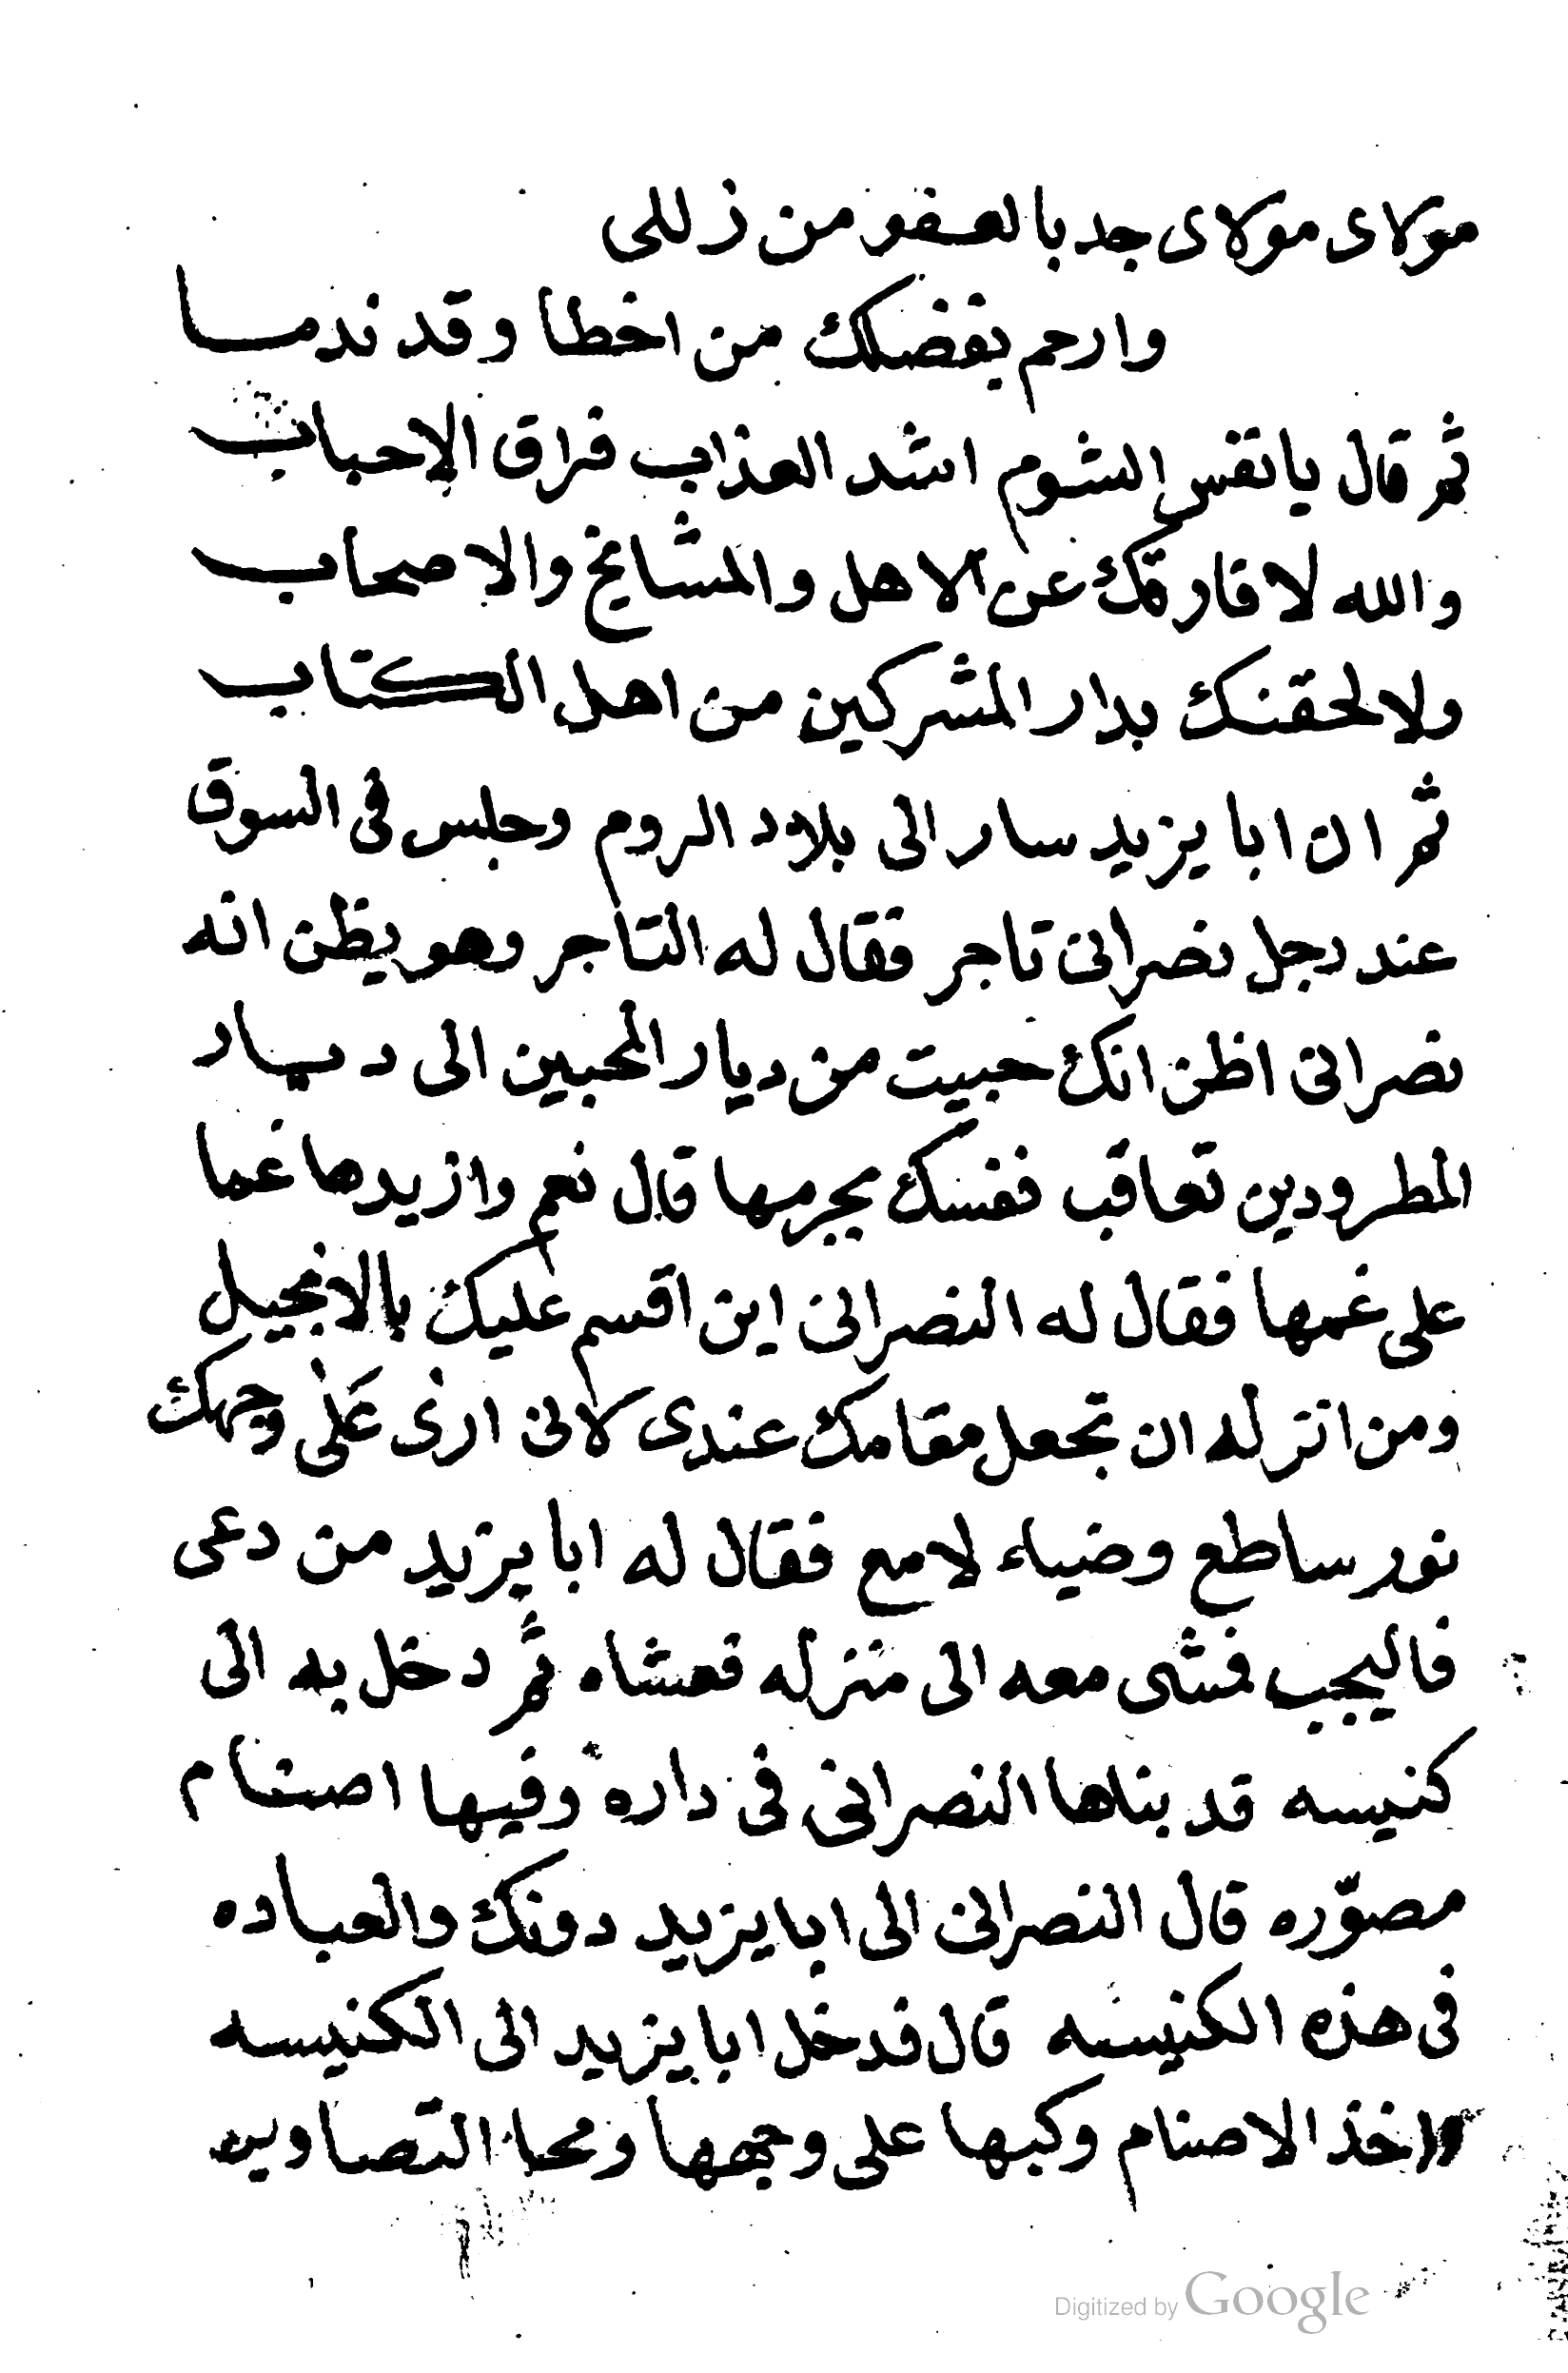 مولاى مولاى جد بالعفو من زللى
وارحم بفضلك من اخطا وقد ندما
ثم قال يا نفس الشوم اشد العذاب فراق الاحباب
والله لا فارقتك عن الاهل والمشايخ والاصحاب
ولالحقنك بدار المشركين من اهل الكتاب
ثم ان ابا يزيد سار الى بلاد الروم وجلس فى السوق
عند رجل نصرانى تاجر فقال له التاجر وهو يظن انه
نصرانى اظن انك جيت من ديار المحبين الى ديار
المطرودين تعاقب نفسك بجرمها قال نعم وازيدها غما
على غمها فقال له النصرانى اين اقسم عليك بالانجيل
ومن انزله ان تجعل مقامك عندى لانى ارى على وجهك
نور ساطع وضياء لامع فقال له ابا يزيد من دعى
فاليجب فمشى معه الى منزله فعشاه ثم دخل به الى
كنيسه قد بناها النصرانى فى داره وفيها اصنام
مصوّره قال النصرانى الى ابا يزيد دونك والعباده
فى هذه الكنيسه قال فدخل ابا يزيد الى الكنيسه
واخذ الاصنام وكبها على وجهها ومحا التصاوير
Digitized by Google